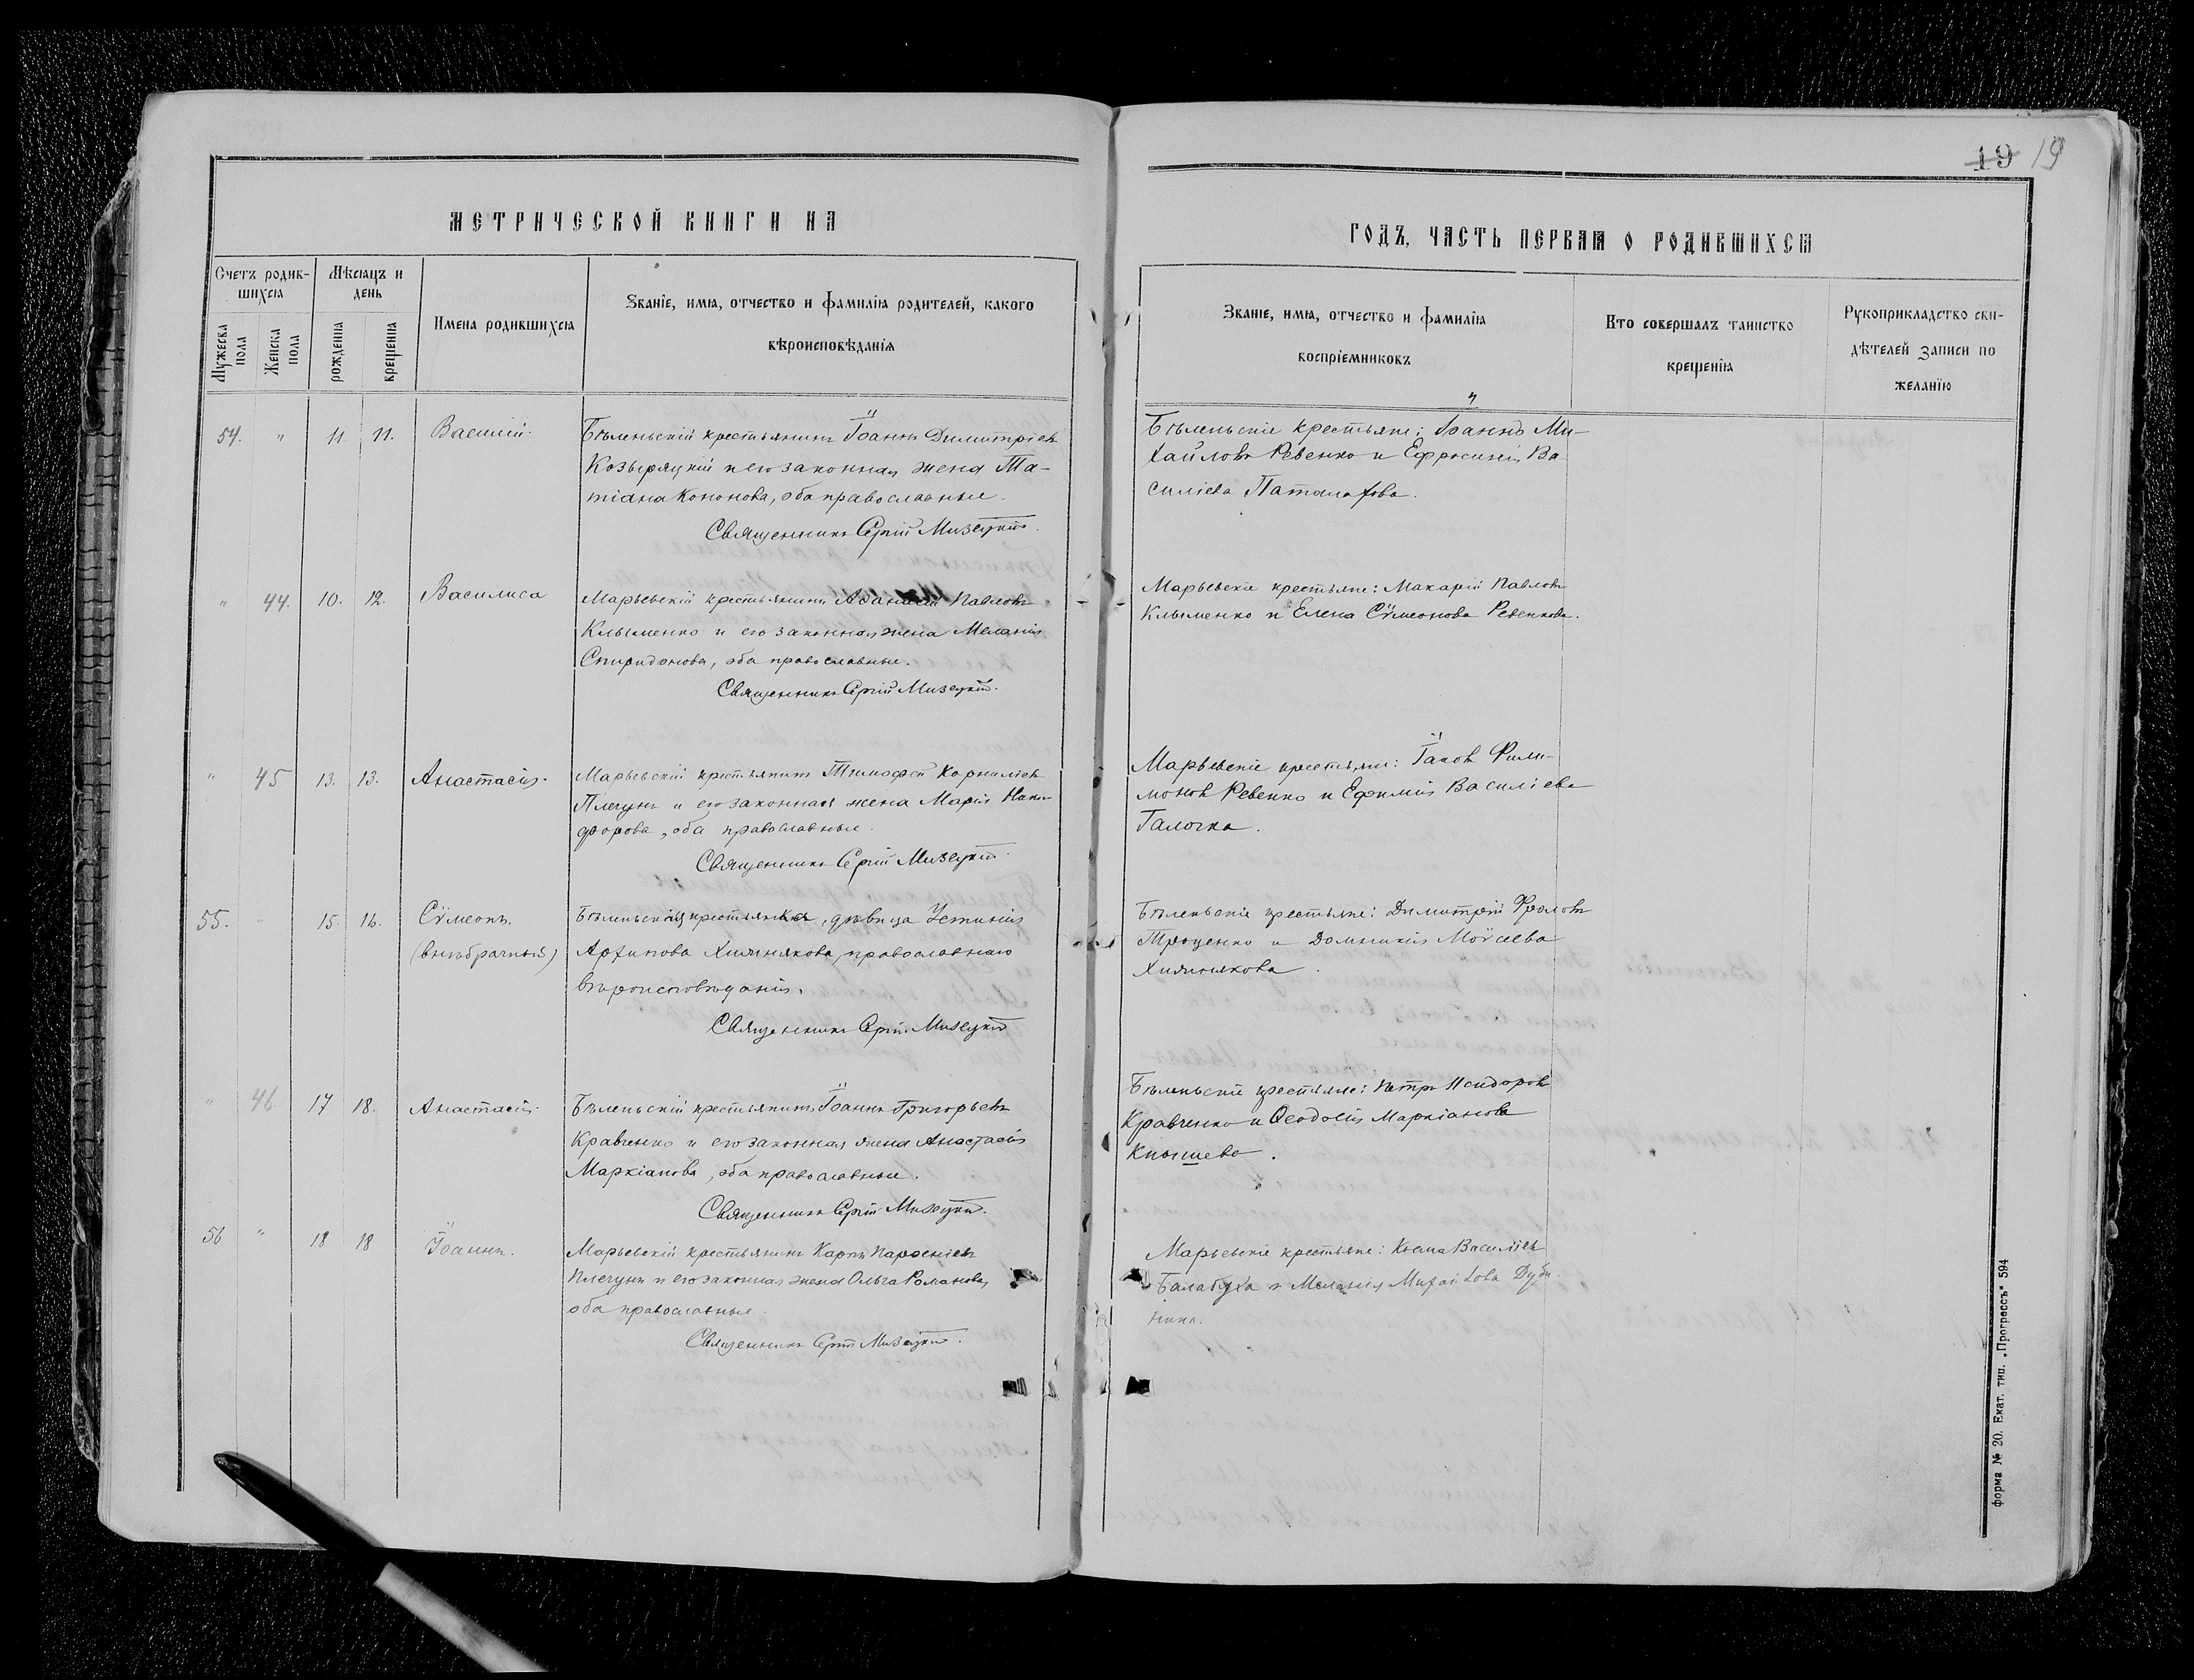 19 19
МЕТРИЧЕСКОЙ КНИГИ НА
ГОДЪ, ЧАСТЬ ПЕРВАЯ О РОДИВШИХСЯ
Счетъ родив-
шихся
Мѣсяцъ и
день
Мужеска
пола
Женска
пола
рожденія
крещенія
Имена родившихся
Званіе, имя, отчество и фамилія родителей, какого
вѣроисповѣданія
Званіе, имя, отчество и фамилія
воспріемниковъ
Кто совершалъ таинство
крещенія
Рукоприкладство сви-
дѣтелей записи по
желанію
54. " 11. 11. Василій.
Бѣленьскій крестьянинъ Іоаннъ Димитріевъ
Козыряцкій и его законная жена Та-
тіана Кононова, оба православные.
Священникъ Сергій Мизецкій.
Бѣленьскіе крестьяне: Іоаннъ Ми-
хайловъ Ревенко и Ефросинія Ва
силіева Паталахова.
" 44. 10. 12. Василиса
Марьевскій крестьянинъ Аѳанасій Павловъ
Клыменко и его законная жена Меланія
Спиридонова, оба православные.
Священникъ Сергій Мизецкій.
Марьевскіе крестьяне: Макарій Павловъ
Клыменко и Елена Сѵмеонова Ревенкова.
" 45 13. 13. Анастасія.
Марьевскій крестьянинъ Тимофей Корниліевъ
Плечунъ и его законная жена Марія Ники
форова, оба православные.
Священникъ Сергій Мизецкій.
Марьевскіе крестьяне: Іаковъ Фили-
моновъ Ревенко и Ефимія Василіева
Галочка.
55. " 15. 16. Сѵмеонъ.
(внѣбрачный)
Бѣленьская крестьянка, дѣвица Устинія
Архипова Хижнякова, православнаго
вѣроисповѣданія.
Священникъ Сергій Мизецкій
Бѣленьскіе крестьяне: Димитрій Фроловъ
Троценко и Домникія Моѵсеева
Хижнякова.
" 46 17 18. Анастасія.
Бѣленьскій крестьянинъ Іоаннъ Григорьевъ
Кравченко и его законная жена Анастасія
Маркіанова, оба православные.
Священникъ Сергій Мизецкій.
Бѣленьскіе крестьяне: Петръ Исидоровъ
Кравченко и Ѳеодосія Маркіанова
Кнышева.
56 " 18 18 Іоаннъ.
Марьевскій крестьянинъ Карпъ Парѳеніевъ
Плечунъ и его законная жена Ольга Романова,
оба православные.
Священникъ Сергій Мизецкій.
Марьевскіе крестьяне: Косма Василіевъ
Балабуха и Меланія Михайлова Дуби-
нина.
форма № 20. Екат. тип. „Прогрессъ" 594